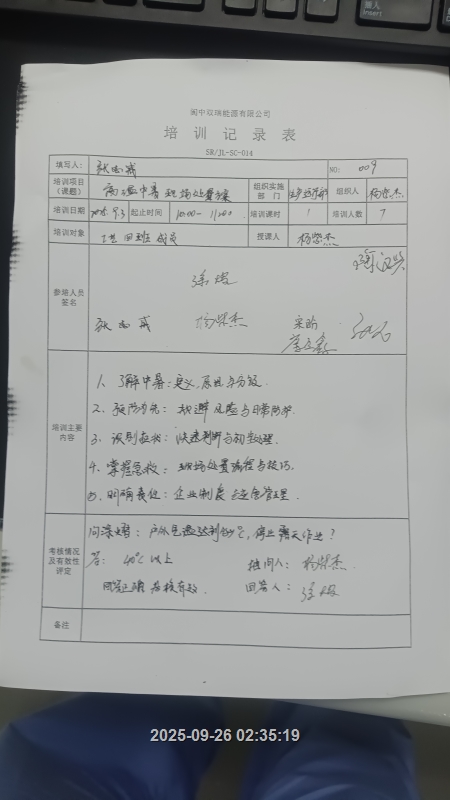 嵌入
Insert
阆中双瑞能源有限公司
培训记录表
SR/JL-SC-014
填写人: NO: 009
培训项目(课题) 高温中暑现场处置方案 组织实施部门 组织人 杨学杰
培训日期 2025.9.3 起止时间 10:00-11:00 培训课时 1 培训人数 7
培训对象 四班成员 授课人 杨学杰
参培人员签名
杨学杰
培训主要内容
1、了解中暑:定义、原因与分级.
2、预防为先:规避风险与日常防护.
3、识别症状:快速判断与初步处理.
4、掌握急救:现场处置流程与技巧.
5、明确责任:企业制度与应急管理.
考核情况及有效性评定
问: 户外气温达到多少℃,停止露天作业?
答: 40℃以上 提问人: 杨学杰.
回答正确 考核有效. 回答人:
备注
2025-09-26 02:35:19